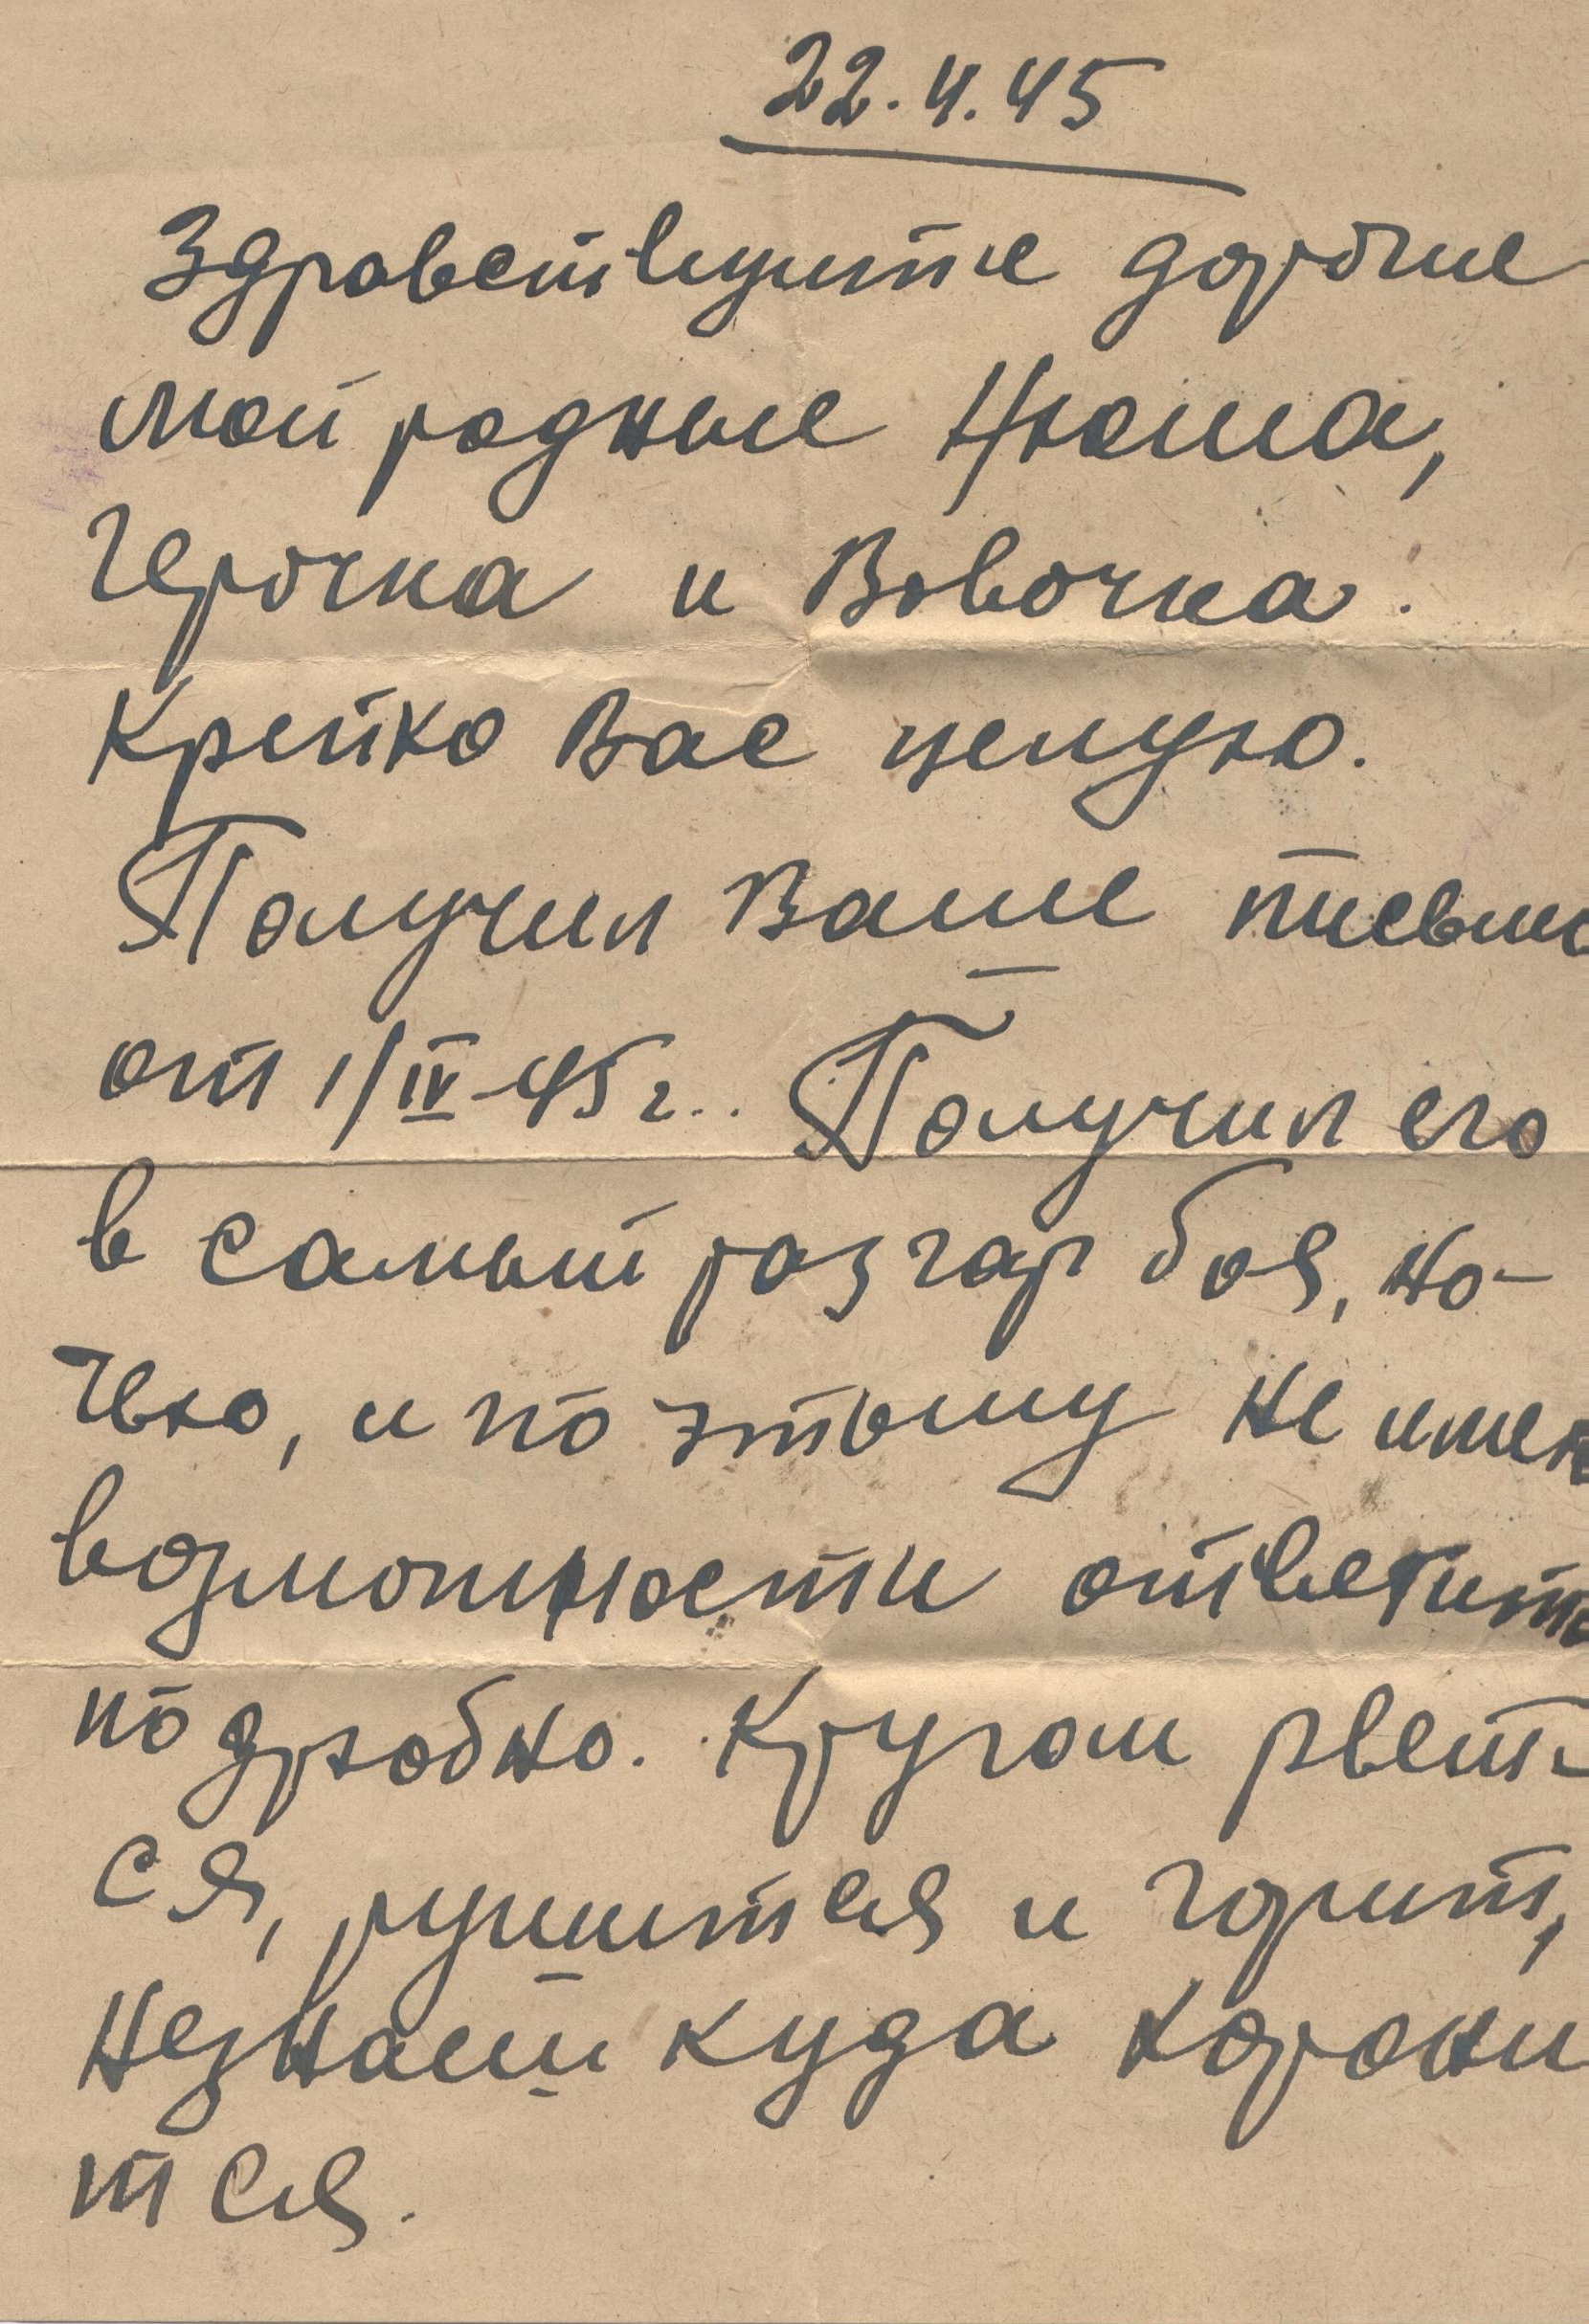 22.4.45
Здравствуйте дорогие
мои родные Нюша,
Герочка и Вовочка.
Крепко Вас целую.
Получил Ваше письмо
от 1/IV-45 г.. Получил его
в самый разгар боя, но-
чью, и по этому не имею
возможности ответить
подробно. Кругом рвет-
ся, рушится и горит,
незнаеш куда хорони
тся.